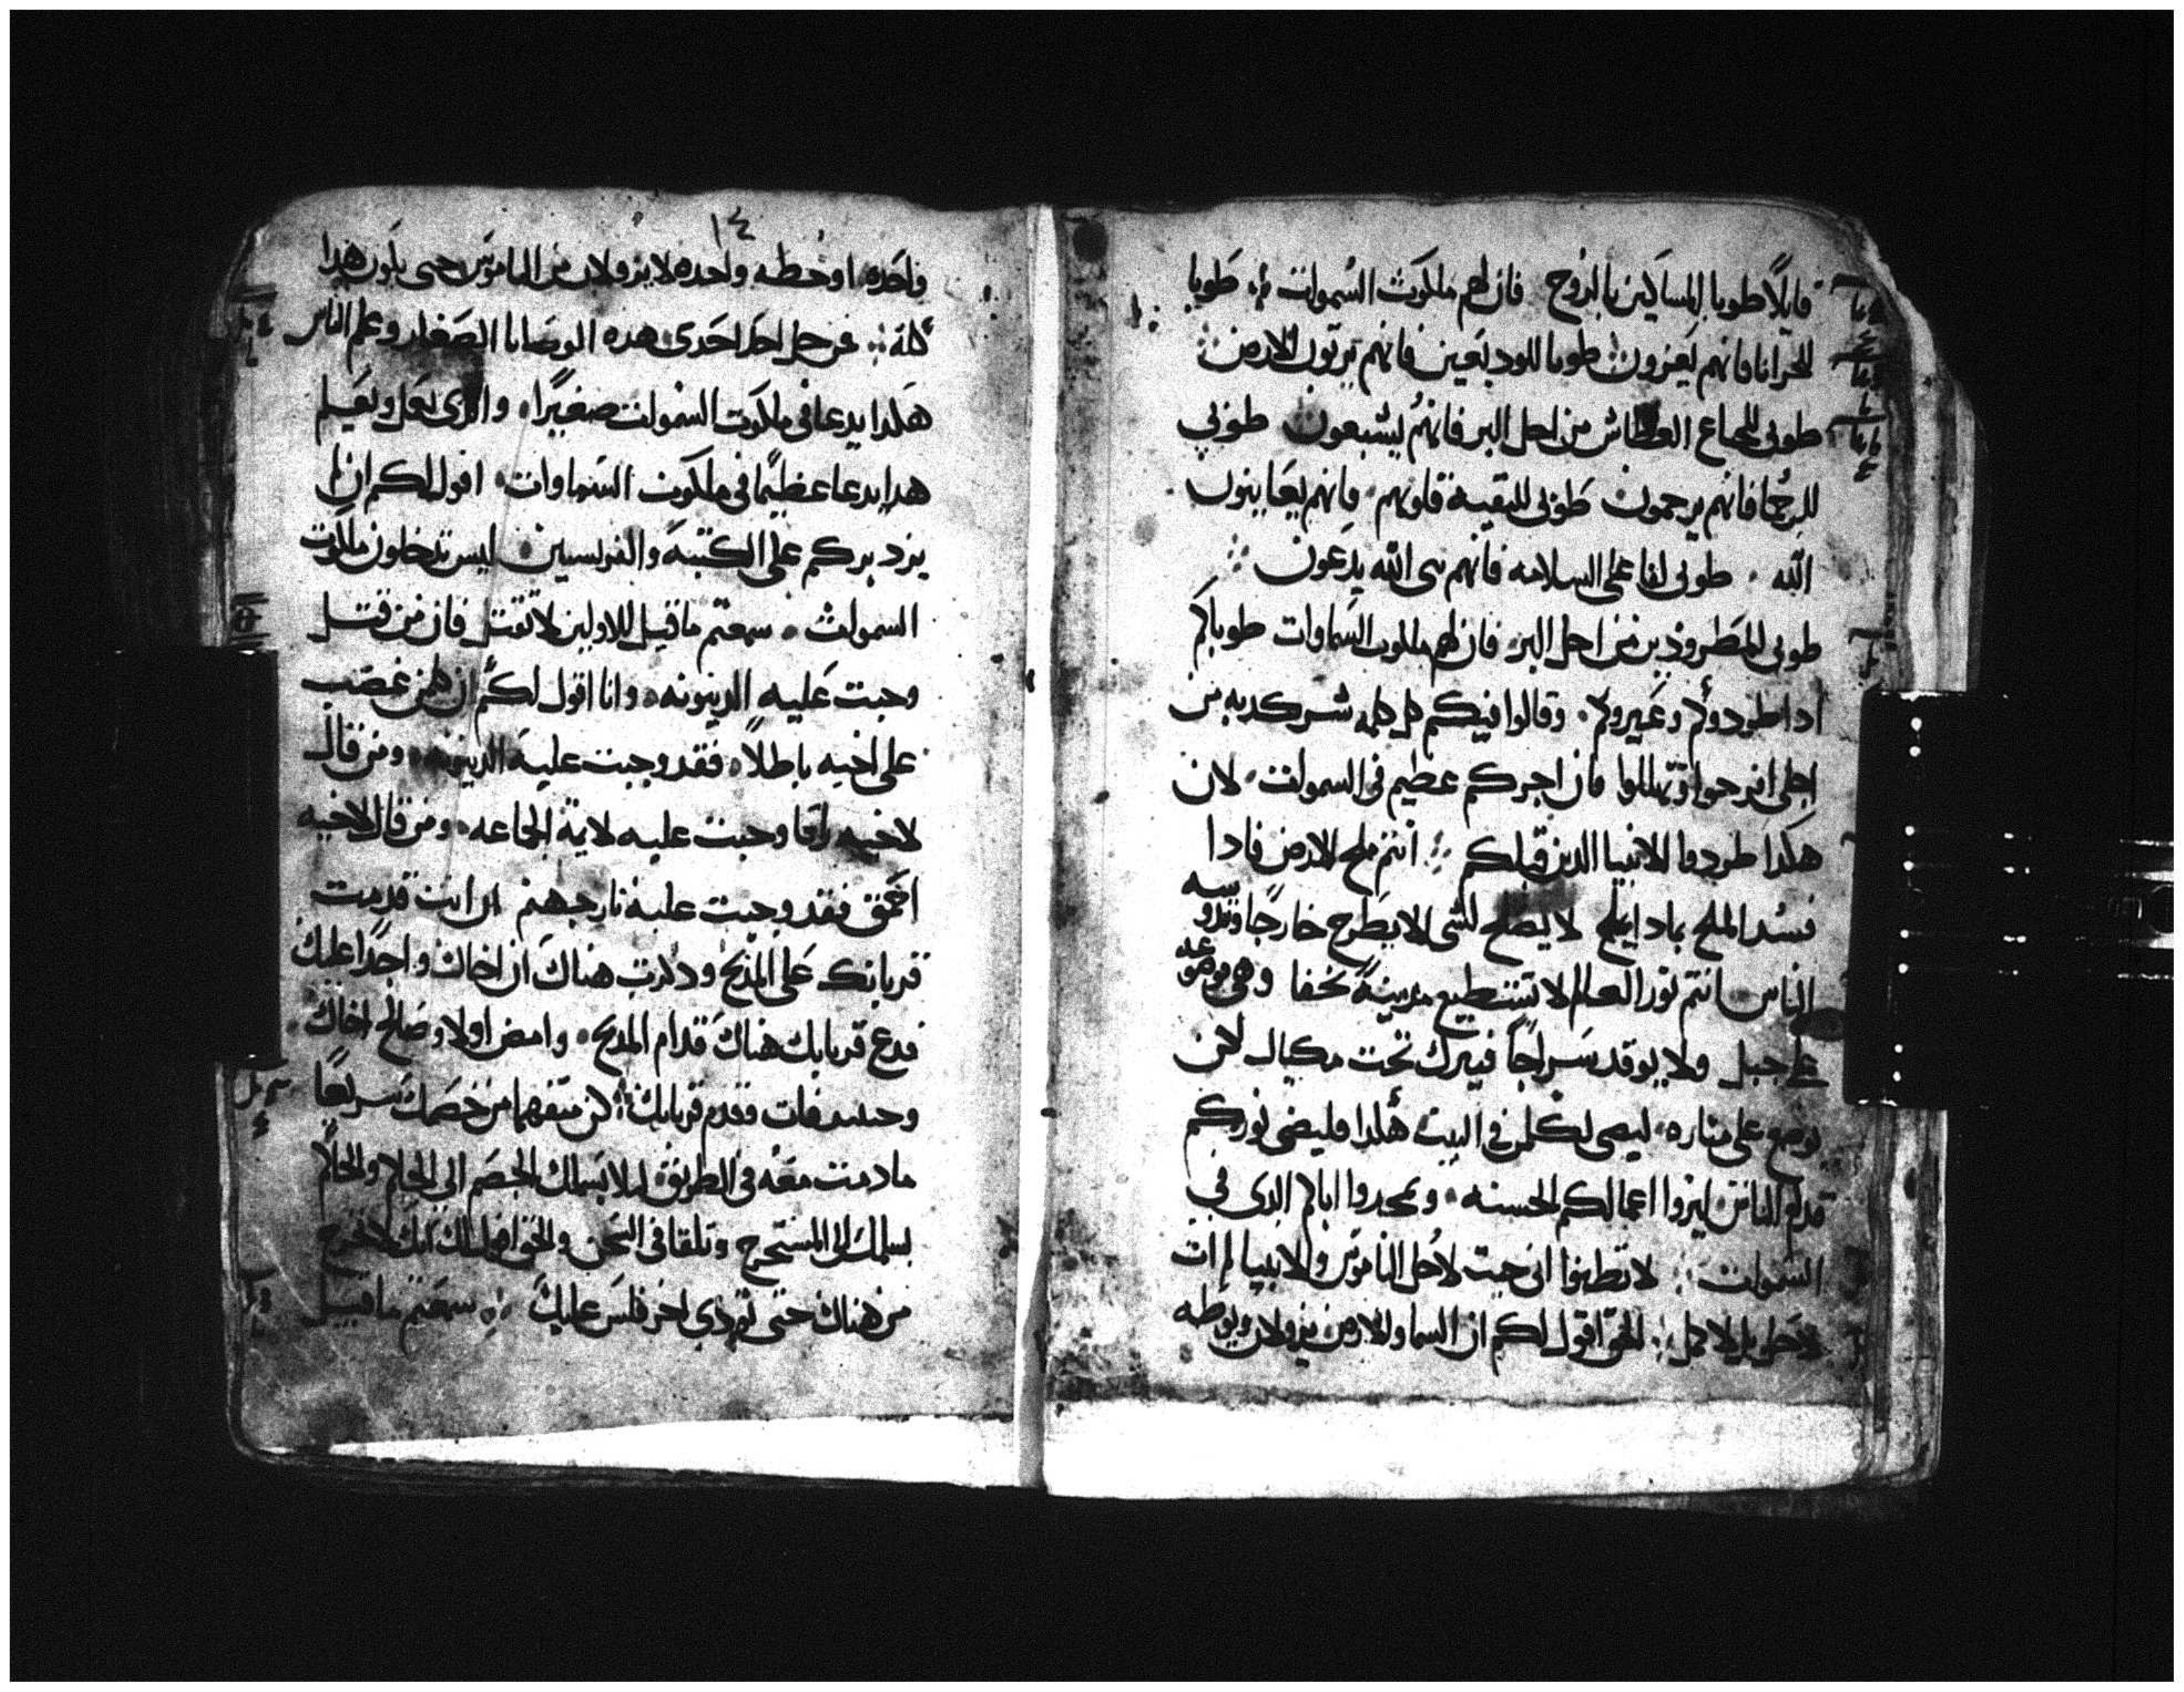 قايلًا طوبا للمساكين بالروح فان لهم ملكوت السموات طوبا
للحزانا فانهم يعزون طوبا للوديعين فانهم يرتون الارض
طوبى للجياع العطاش من اجل البر فانهم ليشبعون طوبي
للرحما فانهم يرحمون طوبى للنقية قلوبهم فانهم يعاينون
الله طوبى لفاعلي السلامه فانهم بنى الله يدعون
طوبى للمطرودين من اجل البر فان لهم ملكوت السماوات طوباكم
ادا طردوكم وعيروكم وقالوا فيكم كل كلمة شر كدبه من
اجلي افرحوا وتهللوا فان اجركم عظيم فى السموات لان
هكدا طردوا الانبيا الدين قبلكم انتم ملح الارض فادا
فسد الملح بمادا يملح لا يصلح لشى الا يطرح خارجًا وتدوسه
الناس انتم نور العالم لا تستطيع مدينة تخفا وهى موضوعه
على جبل ولا يوقد سراجًا فيترك تحت مكيال لاكن
يوضع على مناره ليضى لكلمن فى البيت هكدا فليضى نوركم
قدام الناس ليروا اعمالكم الحسنه ويمجدوا اباكم الدى في
السموات لا تظنوا انى جيت لاحل الناموس والانبيا لم ات
لاحل بل لاكمل الحق اقول لكم ان السما والارض يزولان ويوطه
١٤
واحده او خطه واحده لا يزولان من الناموس حتى يكون هدا
كلة فمن حل احدى هده الوصايا الصغار وعلم الناس
هكدا يدعا فى ملكوت السموات صغيرًا والدى يعمل ويعلم
هدا يدعا عظيمًا فى ملكوت السماوات اقول لكم ان لم
يزد بركم على الكتبة والفريسيين ليس تدخلون ملكوت
السموات سمعتم ما قيل للاولين لا تقتل فان من قتل
وجبت عليه الدينونه وانا اقول لكم ان كلمن غضب
على اخيه باطلًا فقد وجبت عليه الدينونه ومن قال
لاخيه راقا وجبت عليه لايمة الجماعه ومن قال لاخيه
احمق فقد وجبت عليه نار جهنم ان انت قدمت
قربانك على المدبح ودكرت هناك ان اخاك واجدًا عليك
فدع قربانك هناك قدام المدبح وامض اولا وصالح اخاك
وحينيد فات وقدم قربانك كن متفهما من خصمك سريعًا
ما دمت معه فى الطريق ليلا يسلمك الخصم الي الحاكم والحاكم
يسلمك الى المستخرج وتلقا فى السجن والحق اقول لك انك لا تخرج
من هناك حتى تودي اخر فلس عليك سمعتم ما قيل